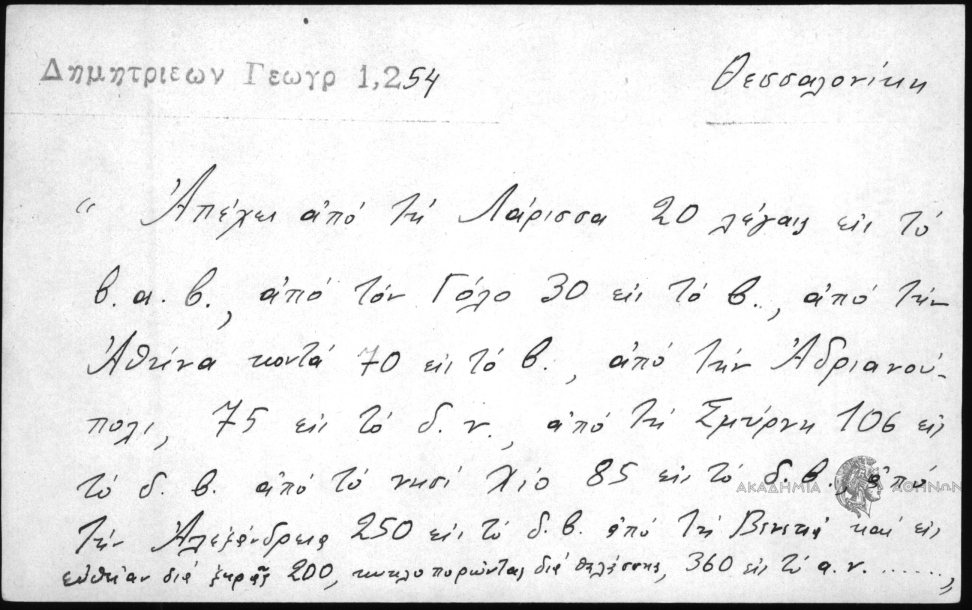 Δημητριεων Γεωγρ 1,254
Θεσσαλονίκη
“ Ἀπέχει ἀπό τή Λάρισσα 20 λέγαις εἰς τό
β. α. β., ἀπό τόν Γόλο 30 εἰς τό β., ἀπό τήν
Ἀθήνα κοντά 70 εἰς τό β., ἀπό τήν Ἀδριανού-
πολι, 75 εἰς τό δ. ν., ἀπό τή Σμύρνη 106 εἰς
τό δ. β. ἀπό τό νησί Χίο 85 εἰς τό δ. β., ἀπό
ΑΚΑΔΗΜΙΑ ΑΘΗΝΩΝ
τήν Ἀλεξάνδρεια 250 εἰς τό δ. β. ἀπό τή Βενετιά καί εἰς
εὐθεῖαν διά ξηρᾶς 200, κυκλοπορώντας διά θαλάσσης, 360 εἰς τό α. ν. ......„